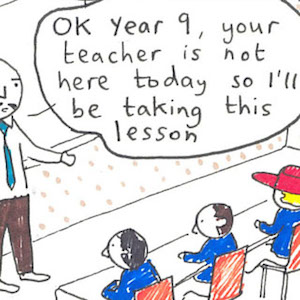 OK Year 9, your
teacher is not
here today so I'll
be taking this
lesson